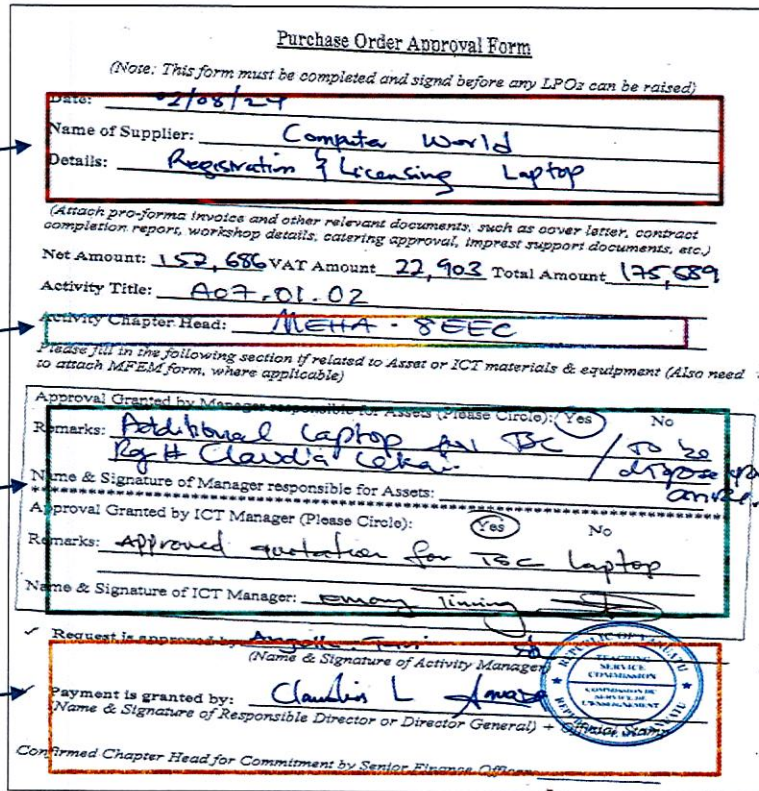 Purchase Order Approval Form
(Note: This form must be completed and signd before any LPOs can be raised)
Date: 02/08/24
Name of Supplier: Computer World
Details: Registration & Licensing Laptop
(Attach pro-forma invoice and other relevant documents, such as cover letter, contract
completion report, workshop details, catering approval, imprest support documents, etc.)
Net Amount: 152,686 VAT Amount 22,903 Total Amount 175,589
Activity Title: A07.01.02
Activity Chapter Head: MEHA - 8EEC
Please fill in the following section if related to Asset or ICT materials & equipment (Also need
to attach MFEM form, where applicable)
Approval Granted by Manager responsible for Assets (Please Circle): Yes No
Remarks: Additional Laptop for TSC / To be
Claudia
Name & Signature of Manager responsible for Assets:
Approval Granted by ICT Manager (Please Circle): Yes No
Remarks: Approved quotation for TSC laptop
Name & Signature of ICT Manager:
Request is approved by
(Name & Signature of Activity Manager)
Payment is granted by: L
(Name & Signature of Responsible Director or Director General) + Official Stamp
REPUBLIC OF VANUATU
TEACHING
SERVICE
COMMISSION
COMMISSION DU
SERVICE DE
L'ENSEIGNEMENT
Confirmed Chapter Head for Commitment by Senior Finance Officer